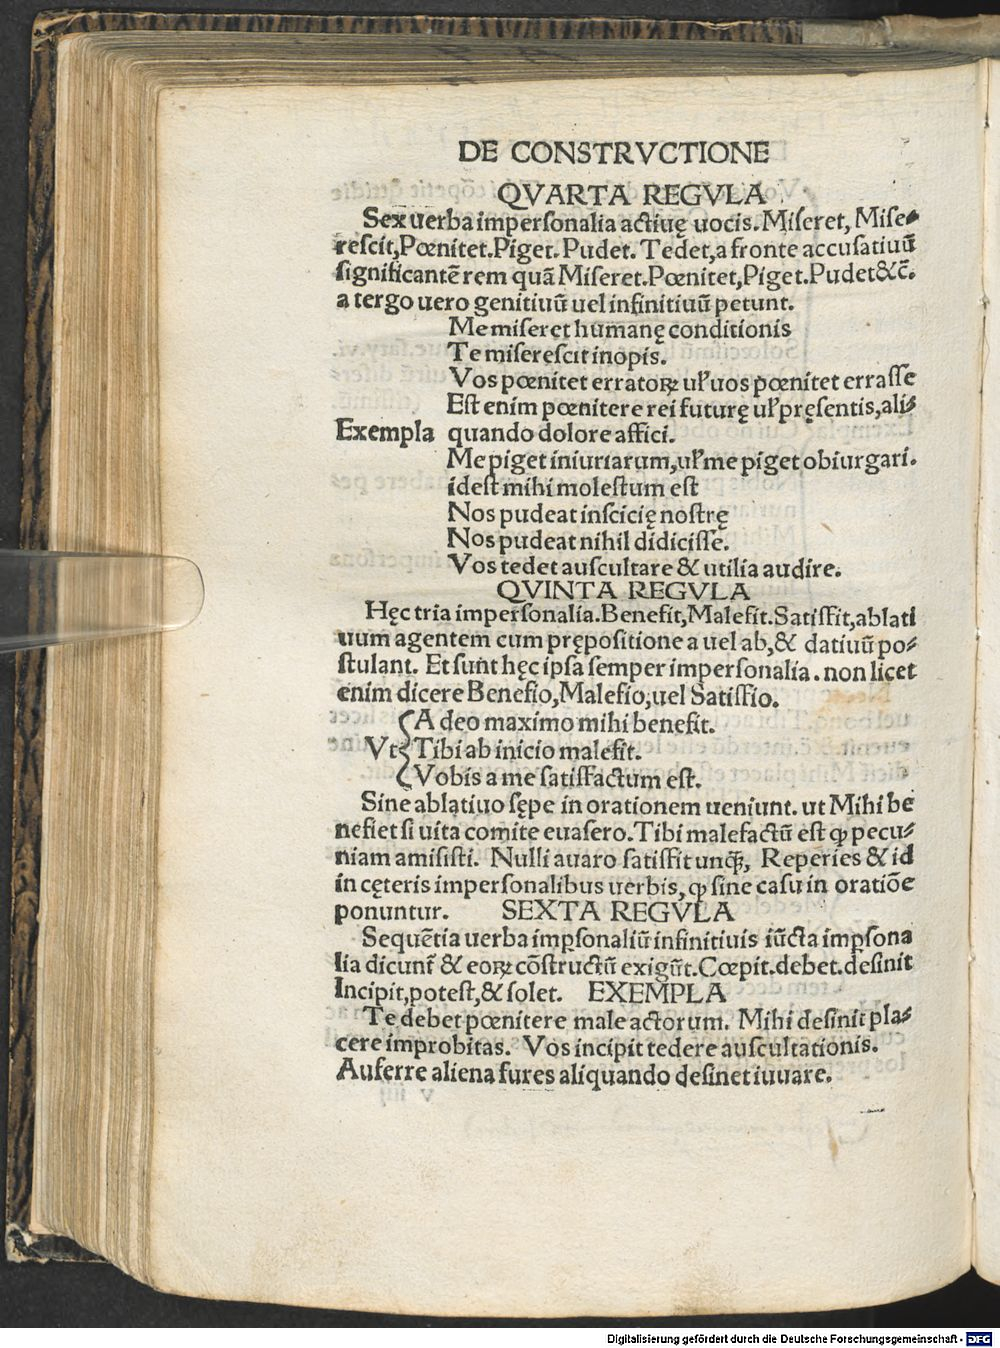 DE CONSTRVCTIONE
QVARTA REGVLA
Sex uerba impersonalia actiuę uocis. Miseret, Mise-
rescit, Pœnitet. Piget. Pudet. Tedet, a fronte accusatiuū
significantē rem quā Miseret. Pœnitet, Piget. Pudet &c̄.
a tergo uero genitiuū uel infinitiuū petunt.
Me miseret humanę conditionis
Te miserescit inopis.
Vos pœnitet erratoꝝ ul' uos pœnitet errasse
Est enim pœnitere rei futurę ul' pręsentis, ali-
Exempla quando dolore affici.
Me piget iniuriarum, ul' me piget obiurgari.
idest mihi molestum est
Nos pudeat inscicię nostrę
Nos pudeat nihil didicisse.
Vos tedet auscultare & utilia audire.
QVINTA REGVLA
Hęc tria impersonalia. Benefit, Malefit. Satisfit, ablati
uum agentem cum prępositione a uel ab, & datiuū po-
stulant. Et sunt hęc ipsa semper impersonalia. non licet
enim dicere Benefio, Malefio, uel Satisfio.
A deo maximo mihi benefit.
Vt Tibi ab inicio malefit.
Vobis a me satisfactum est.
Sine ablatiuo sępe in orationem ueniunt. ut Mihi be
nefiet si uita comite euasero. Tibi malefactū est ꝙ pecu-
niam amisisti. Nulli auaro satisfit unꝗ̄, Reperies & id
in cęteris impersonalibus uerbis, ꝙ sine casu in oratiōe
ponuntur. SEXTA REGVLA
Sequētia uerba imꝑsonaliū infinitiuis iūcta imꝑsona
lia dicunt̄ & eoꝝ cōstructū exigūt. Cœpit. debet. desinit
Incipit, potest, & solet. EXEMPLA
Te debet pœnitere male actorum. Mihi desinit pla-
cere improbitas. Vos incipit tedere auscultationis.
Auferre aliena fures aliquando desinet iuuare.
Digitalisierung gefördert durch die Deutsche Forschungsgemeinschaft - DFG